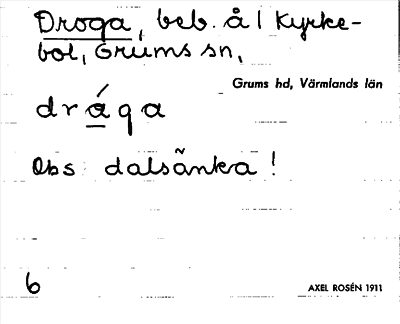 Droga, beb. å l Kyrke-
bol, Grums sn,
Grums hd, Värmlands län
dråga
Obs dalsänka!
6
AXEL ROSÉN 1911